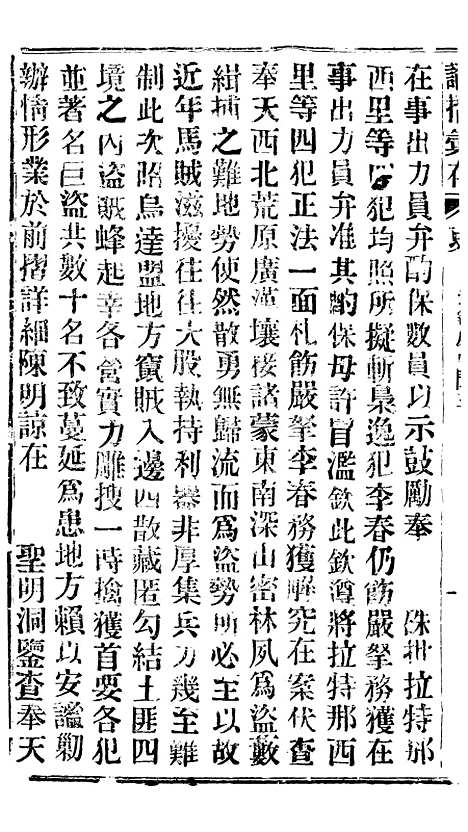 諭摺彙存
在事出力員弁酌保數員以示鼓勵奉 硃批拉特那
西里等四犯均照所擬斬梟逸犯李春仍飭嚴拏務獲在
事出力員弁准其酌保毋許冒濫欽此欽遵將拉特那西
里等四犯正法一面札飭嚴拏李春務獲解究在案伏查
奉天西北荒原廣漠壤接諸蒙東南深山密林夙為盜藪
緝捕之難地勢使然散勇無歸流而為盜勢所必至以故
近年馬賊滋擾往往大股執持利器非厚集兵力幾至難
制此次昭烏達盟地方竄賊入邊四散藏匿勾結土匪四
境之內盜賊蜂起幸各營實力雕搜一時擒獲首要各犯
並著名巨盜共數十名不致蔓延為患地方賴以安謐勦
辦情形業於前摺詳細陳明諒在 聖明洞鑒查奉天